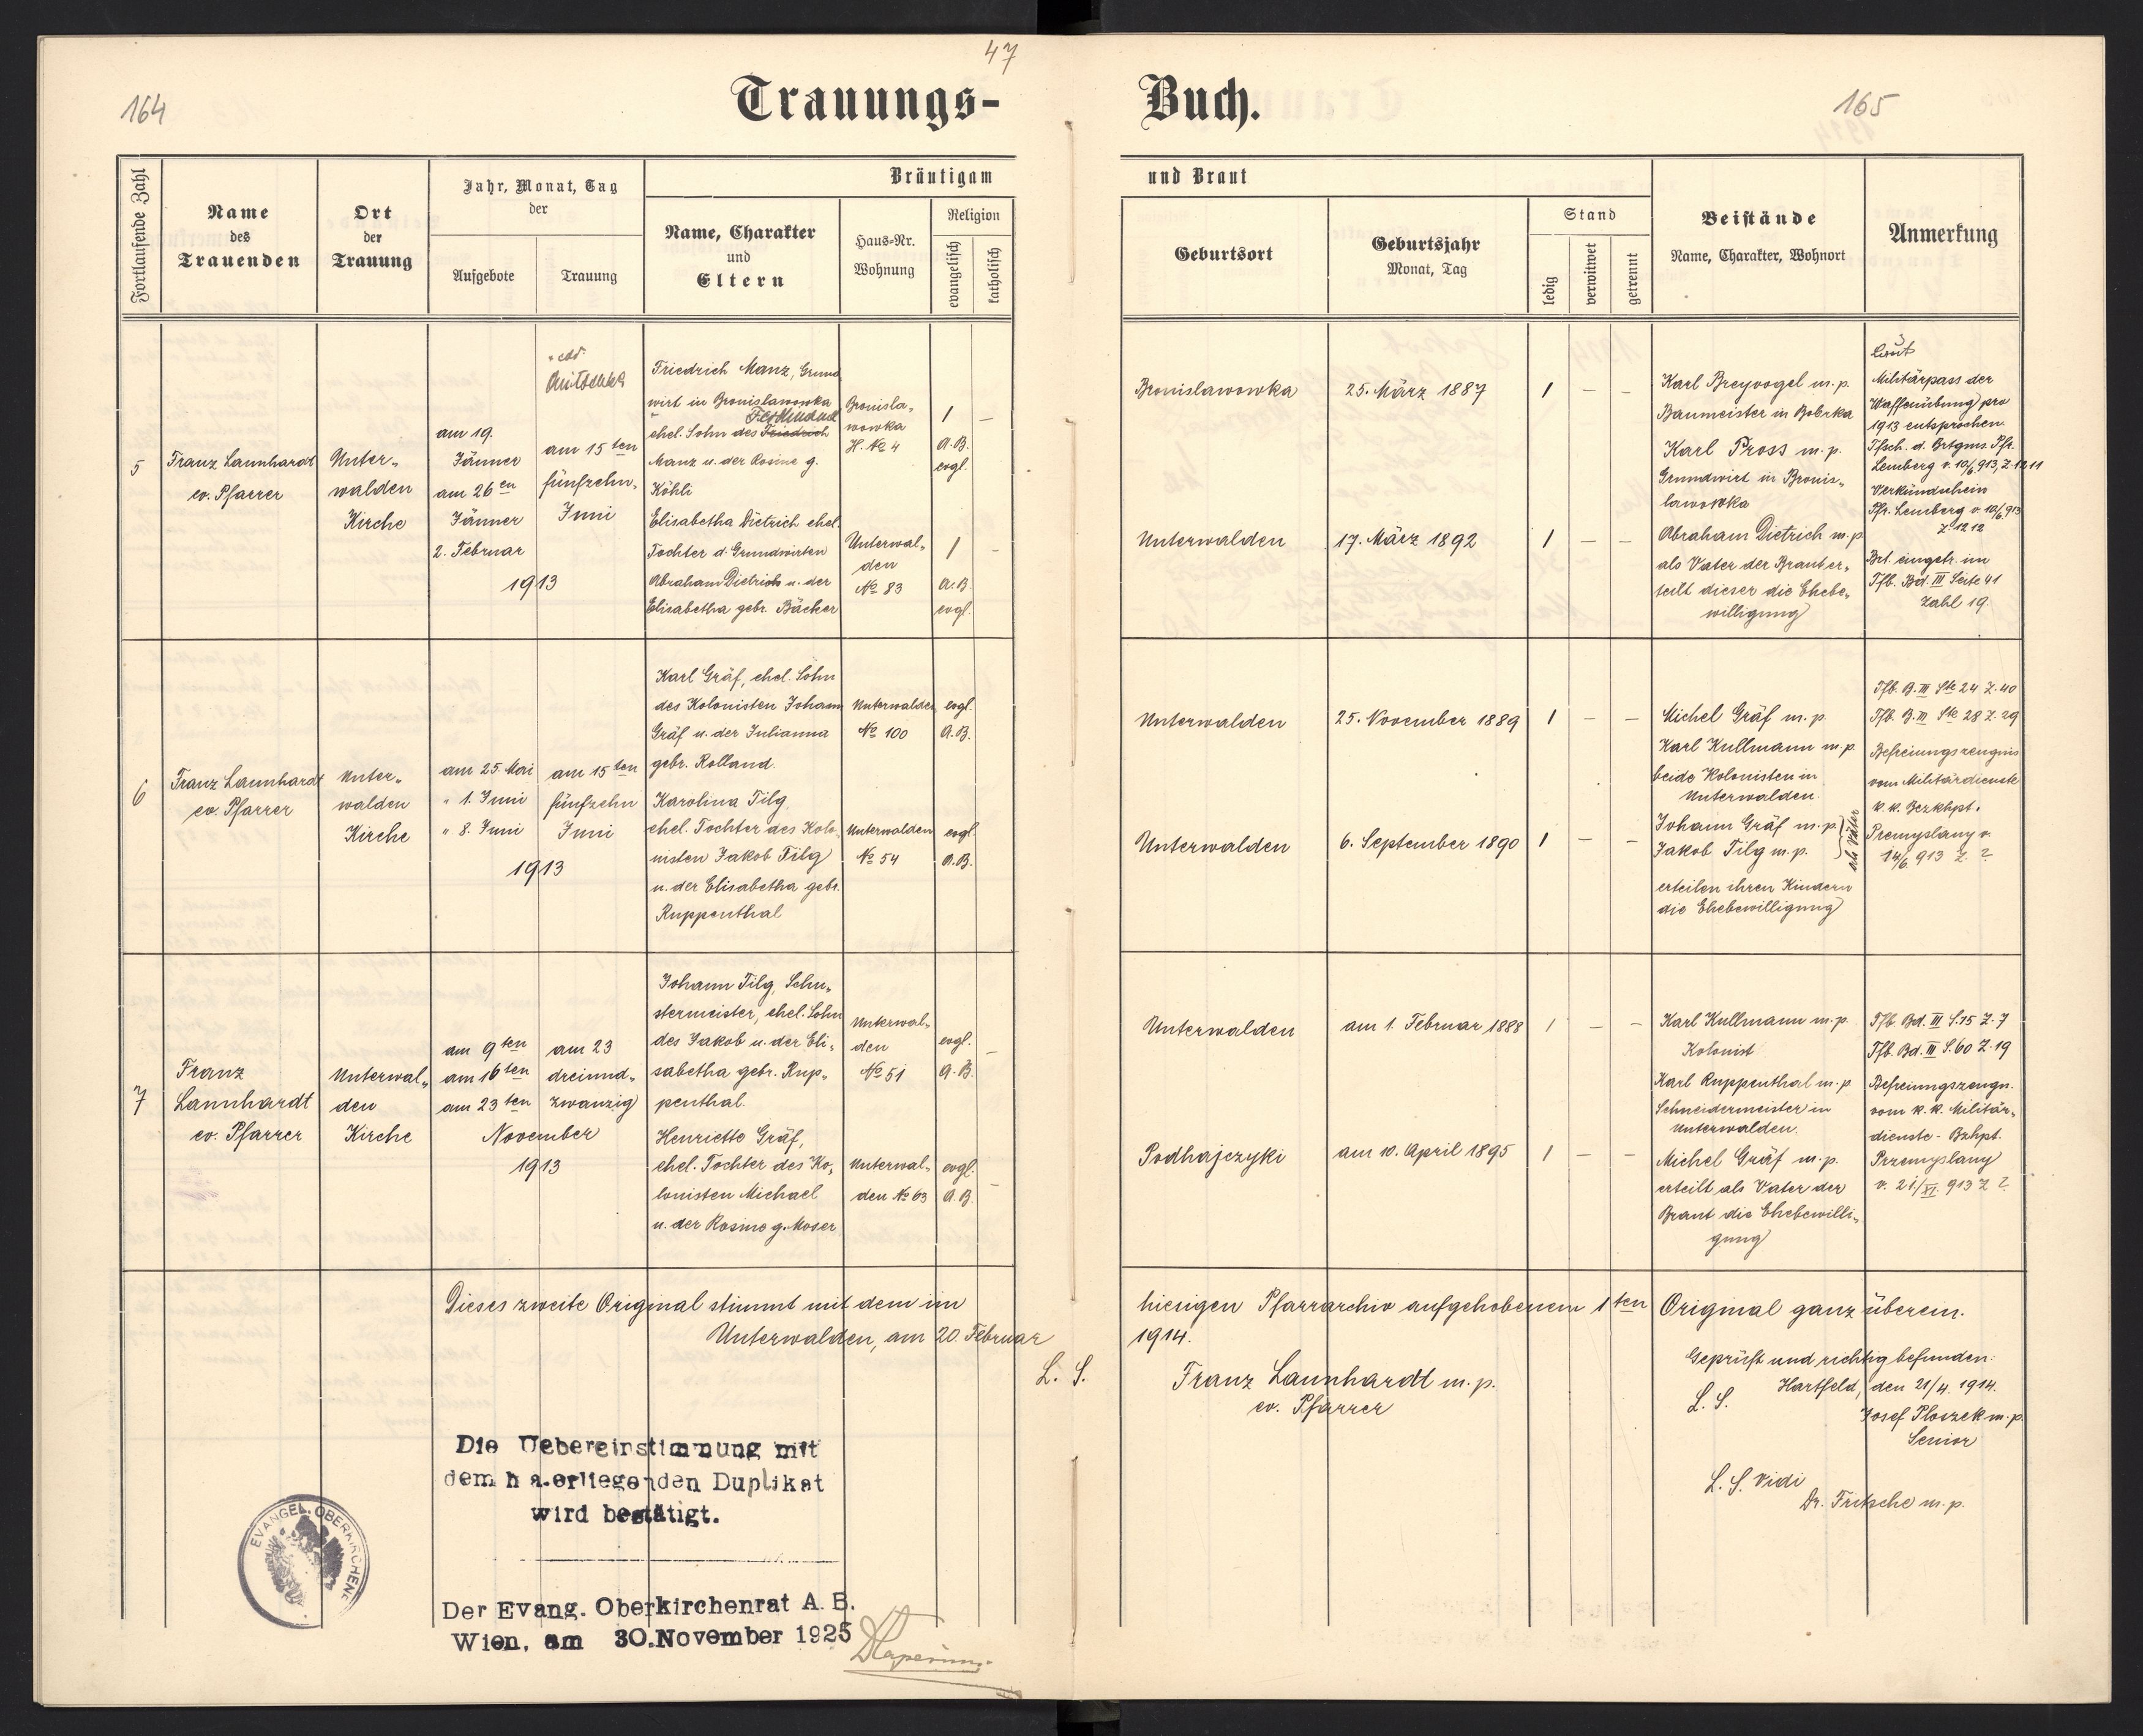 47
164
165
Trauungs-
Buch.
Fortlaufende Zahl
Name
des
Trauenden
Ort
der
Trauung
Jahr, Monat, Tag
der
Aufgebote
Trauung
Bräutigam
und Braut
Name, Charakter
und
Eltern
Haus-Nr.
Wohnung
Religion
evangelisch
katholisch
Geburtsort
Geburtsjahr
Monat, Tag
Stand
ledig
verwitwet
getrennt
Beistände
Name, Charakter, Wohnort
Anmerkung
5
Franz Launhardt
ev. Pfarrer
Unter-
walden
Kirche
am 19.
Jänner
am 26en
Jänner
2. Februar
am 15ten
fünfzehn-
Juni
1913
Friedrich Manz, Grund
wirt in Bronislawowka
Ferdinand
ehel. Sohn des Friedrich
Manz u. der Rosine g.
Köhli
Elisabetha Dietrich ehel.
Tochter d. Grundwirten
Abraham Dietrich u. der
Elisabetha gebr. Bäcker
Bronisla-
wowka
H. No 4
Unterwal-
den
No 83
1 –
A.B.
evgl.
1 –
A.B.
evgl.
Bronislawowka
25. März 1887
1 – –
Unterwalden
17. März 1892
1 – –
Karl Breyvogel m. p.
Baumeister in Bobrka
Karl Pross m. p.
Grundwirt in Bronis-
lawowka
Abraham Dietrich m. p
als Vater der Braut er-
teilt dieser die Ehebe-
willigung
Laut
Militärpass der
Waffenübung pro
1913 entsprochen.
Tfsch. d. Brtgms. Pfr.
Lemberg v. 10/6 913, Z. 1211
Verkündschein
Pfr. Lemberg v. 10/6 913
Z. 1212
Brt. eingetr. im
Tfb. Bd. III Seite 41
Zahl 19.
6
Franz Launhardt
ev. Pfarrer
Unter-
walden
Kirche
am 25. Mai
" 1. Juni
" 8. Juni
am 15ten
fünfzehn
Juni
1913
Karl Gräf, ehel. Sohn
des Kolonisten Johann
Gräf u. der Julianna
gebr. Rolland.
Karolina Tilg,
ehel. Tochter des Kolo-
nisten Jakob Tilg
u. der Elisabetha gebr.
Ruppenthal
Unterwalden
No 100
Unterwalden
No 54
evgl.
A.B.
evgl.
A.B.
Unterwalden
25. November 1889
1 – –
Unterwalden
6. September 1890
1 – –
Michel Gräf m. p.
Karl Kullmann m. p.
beide Kolonisten in
Unterwalden.
Johann Gräf m. p.
Jakob Tilg m. p.
als Väter
erteilen ihren Kindern
die Ehebewilligung
Tfb. B. III Ste 24 Z. 40
Tfb. B. III Ste 28 Z. 29
Befreiungszeugnis
vom Militärdienste
k. k. Bezkhpt.
Premyslany v.
14/6 913 Z. ?
7
Franz
Launhardt
ev. Pfarrer
Unterwal-
den
Kirche
am 9ten
am 16ten
am 23ten
am 23
dreiund-
zwanzig
November
1913
Johann Tilg, Schu-
stermeister, ehel. Sohn
des Jakob u. der Eli-
sabetha gebr. Rup-
penthal.
Henriette Gräf,
ehel. Tochter des Ko-
lonisten Michael
u. der Rosine g. Moser
Unterwal-
den
No 51
Unterwal-
den No 63
evgl. –
A.B.
evgl. –
A.B.
Unterwalden
am 1. Februar 1888
1 – –
Podhajczyki
am 10. April 1895
1 – –
Karl Kullmann m. p.
Kolonist
Karl Ruppenthal m. p
Schneidermeister in
Unterwalden.
Michel Gräf m. p.
erteilt als Vater der
Braut die Ehebewilli-
gung
Tfb. Bd. III S. 15 Z. 7
Tfb. Bd. III S. 60 Z. 19
Befreiungszeugn.
vom k. k. Militär-
dienste - Bzhpt.
Przemyslany
v. 21./XI. 913 Z ?
Dieses zweite Original stimmt mit dem im hiesigen Pfarrarchiv aufgehobenem 1ten Original ganz überein.
Unterwalden, am 20. Februar 1914.
L. S.
Franz Launhardt m. p.
ev. Pfarrer
Geprüft und richtig befunden:
Hartfeld, den 21/4. 1914.
L. S.
Josef Ploszek m. p.
Senior
L. S. Vidi
Dr. Fritsche m. p.
Die Uebereinstimmung mit
dem h a. erliegenden Duplikat
wird bestätigt.
EVANGEL. OBERKIRCHEN
Der Evang. Oberkirchenrat A. B.
Wien, am 30. November 1925